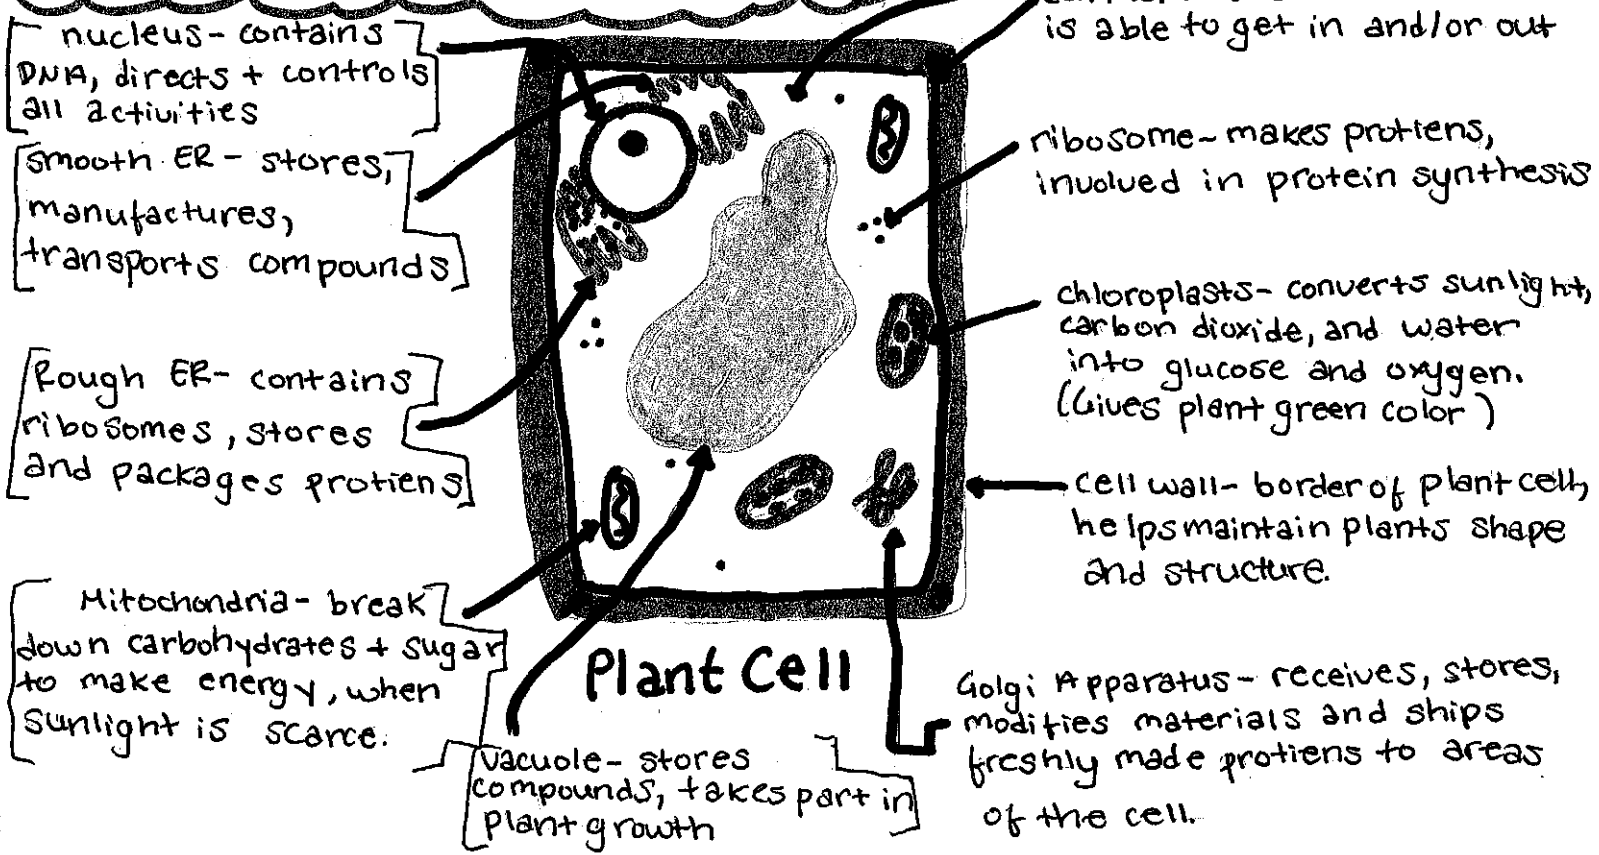 nucleus- contains
DNA, directs + controls
all activities
smooth ER - stores,
manufactures,
transports compounds
Rough ER- contains
ribosomes, stores
and packages protiens
Mitochondria- break
down carbohydrates + sugar
to make energy, when
sunlight is scarce.
vacuole- stores
compounds, takes part in
plant growth
Plant Cell
is able to get in and/or out
ribosome- makes protiens,
involved in protein synthesis
chloroplasts- converts sunlight,
carbon dioxide, and water
into glucose and oxygen.
(Gives plant green color)
cell wall- border of plant cell,
helps maintain plants shape
and structure.
Golgi Apparatus- receives, stores,
modifies materials and ships
freshly made protiens to areas
of the cell.